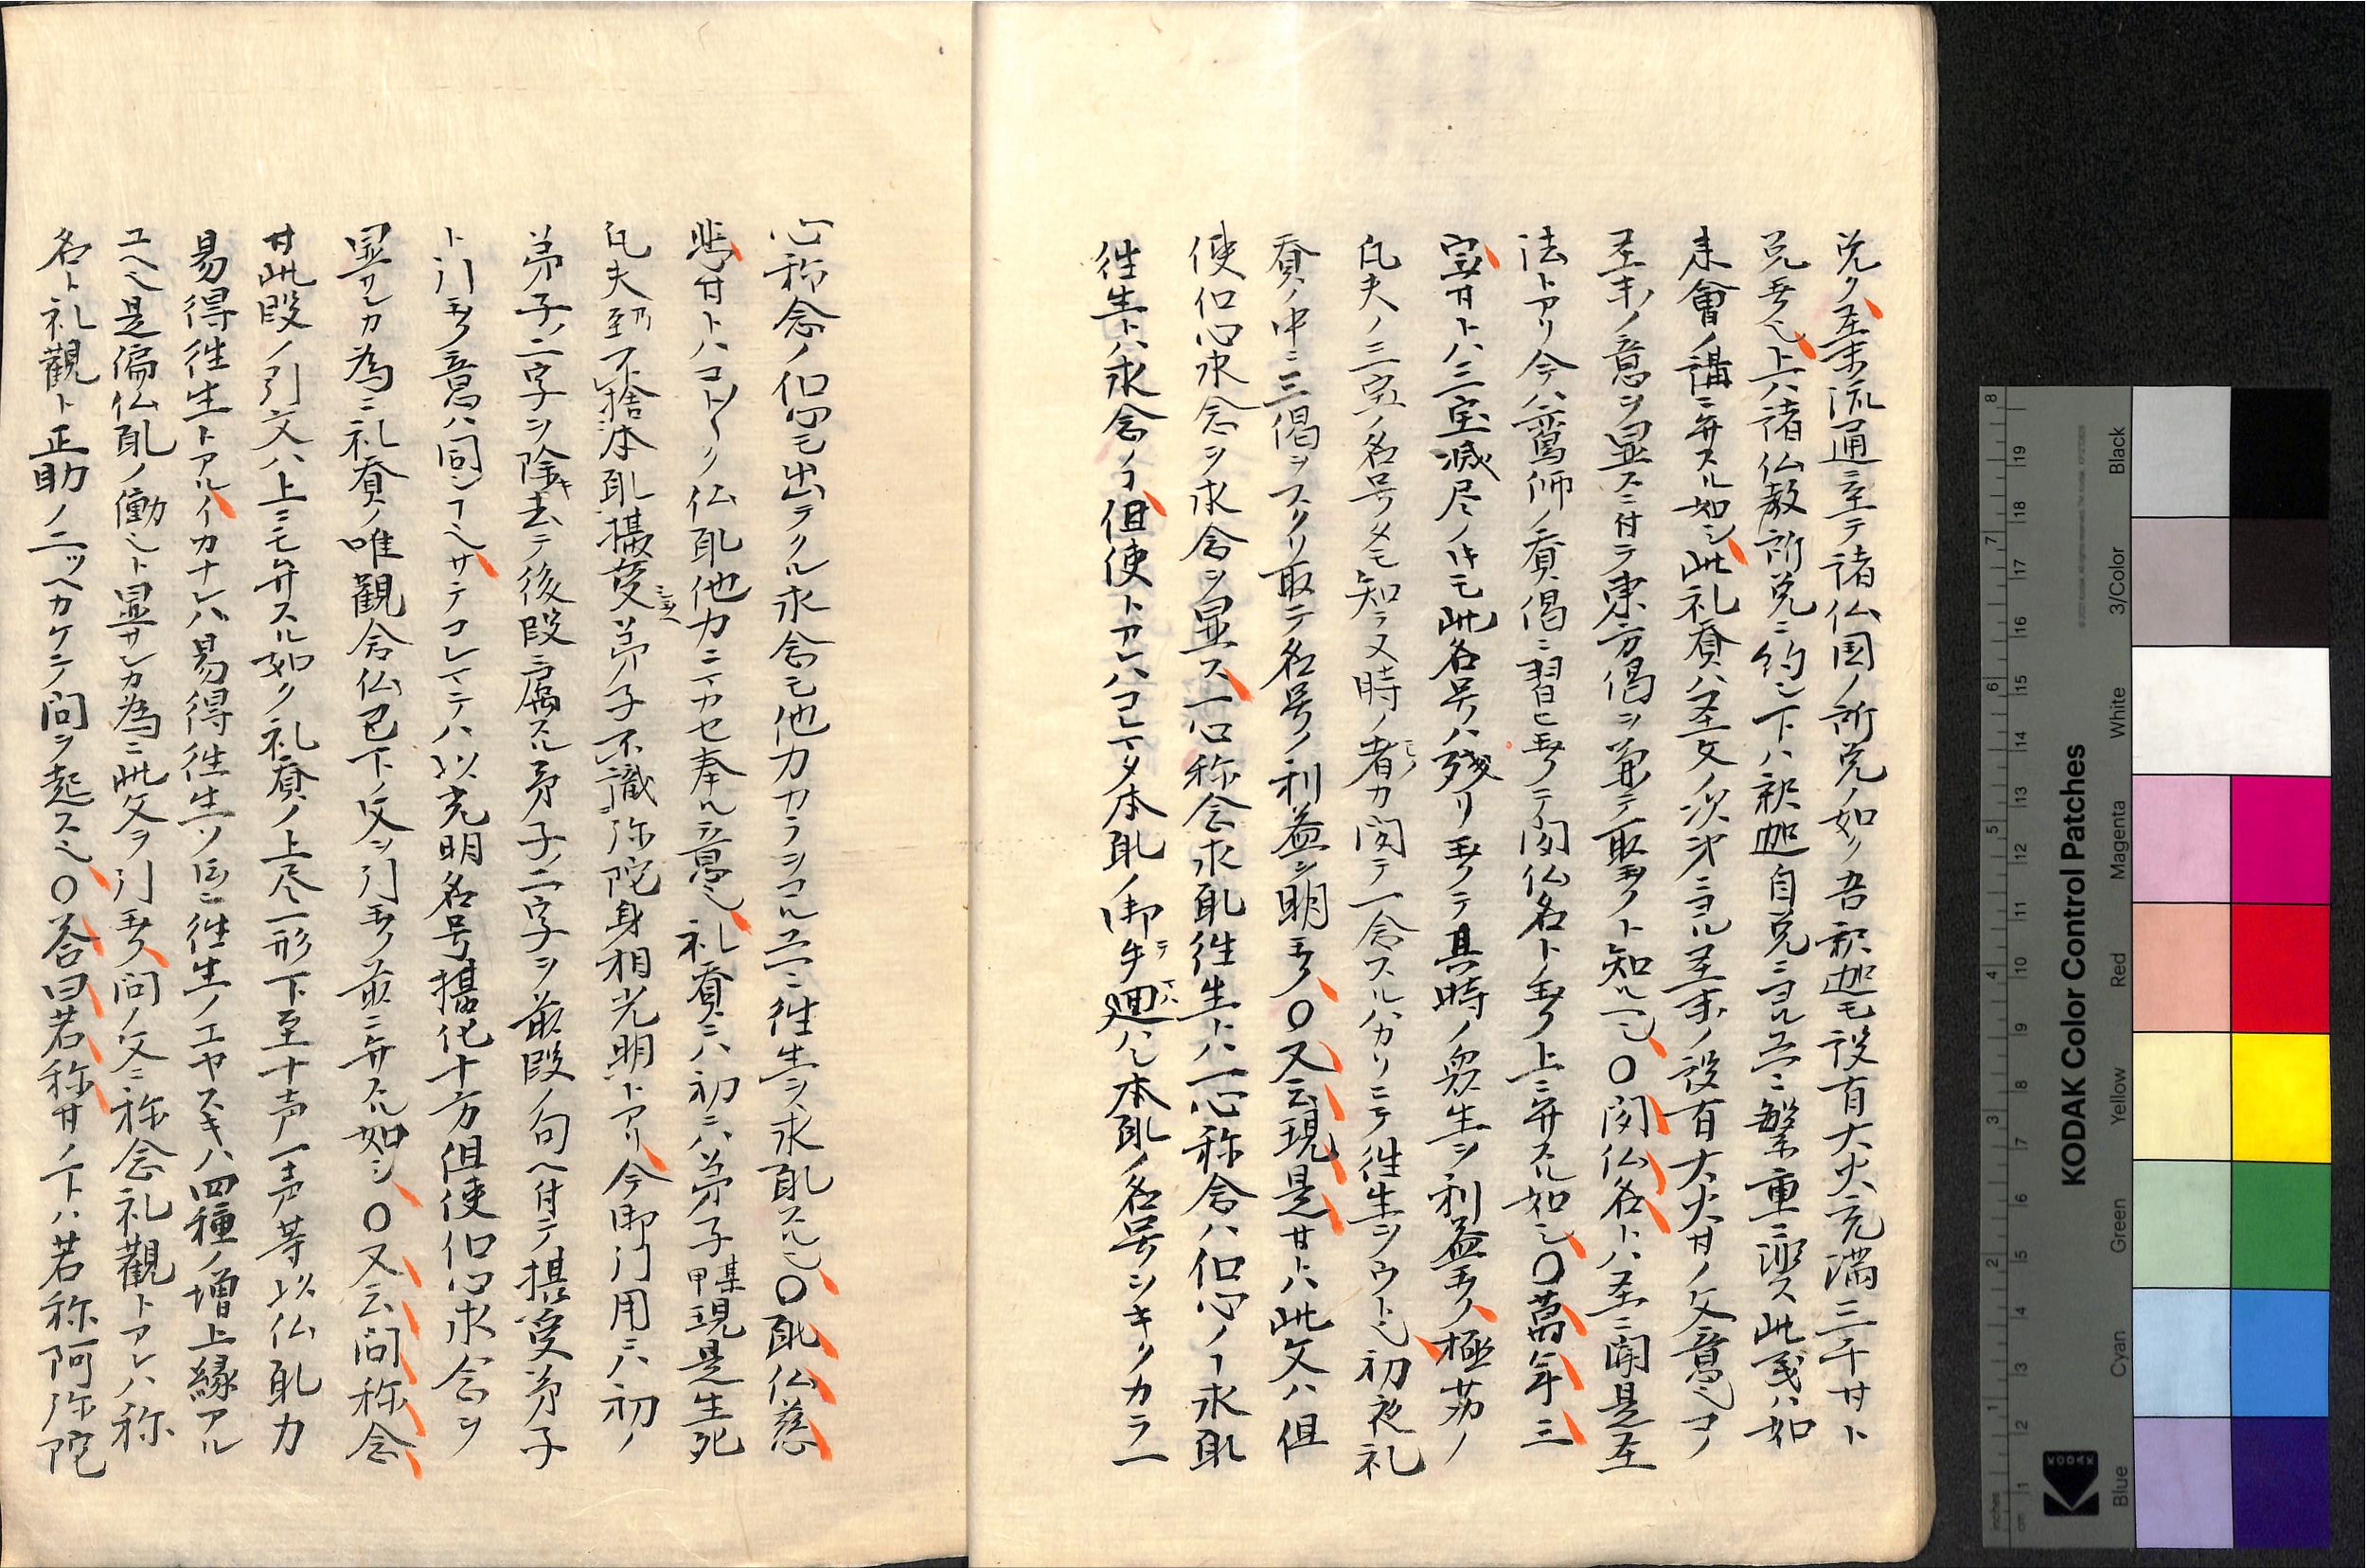 兌ク至末流通ニ至テ諸仏国ノ所兌ノ如ク吾釈迦モ設有大火充満三千サト
兌玉フ也上ハ諸仏教所兌ニ約シ下ハ釈迦自兌ニヨル
末會ノ講ニ弁スル如シ此礼賛ハ至文ノ次第ニヨル至末ノ設有大火サノ文意也コノ
至末ノ意ヲ显スニ付テ東方偈ヲ兼テ取玉フト知ル〇聞仏名トハ至ニ聞是至
法トアリ今ハ鸞師ノ賛偈ニ習ヒ玉フテ聞仏名トノ玉フ上ニ弁スル如シ〇萬年三
宝サトハ三宝滅尽ノ此名号ハ残リ玉フテ其時ノ衆生ヲ利益玉フ極苦ノ
凡夫ノ三宝ノ名号タモ知ラヌ時ノ者カ聞テ一念スルハカリニテ往生ヲウト也初夜礼
賛ノ中ニ三偈ヲスクリ取テ名号ノ利益ヲ明玉フ〇又云現是サトハ此文ハ但
使但心求念ヲ求念ヲ显ス一心称念求𦖠往生トハ一心称念ハ但心ノ求𦖠
往生トハ求念ノ但使トアレハコレマタ本𦖠ノ御手廻ハシ本𦖠ノ名号ヲキクカラ一
心称念ノ但心モ出テクル求念モ他力カラヲコル往生ヲ求𦖠スル也〇𦖠仏慈
悲サトハコトク仏𦖠他力ニマカセ奉ル意也礼賛ニハ初ニハ弟子某甲現是生死
凡夫乃至不捨本𦖠攝受弟子不識弥陀身相光明トアリ今御引用ニハ初ノ
弟子ノ二字ヲ除キ去テ後段ニ属スル弟子ノ二字ヲ前段ノ句ヘ付テ攝受弟子
ト引玉フ意ハ同シサテコレマテハ以光明名号攝化十方但使但心求念ヲ
显サンカ為ニ礼賛ノ唯觀念仏已下ノ文ヲ引玉フ前ニ弁スル如シ〇又云問称念
サ此段ノ引文ハ上ニモ弁スル如ク礼賛ノ上尽一形下至十声一声等以仏𦖠力
易得往生トアルイカナレハ易得往生ソ往生ノエヤスキハ四種ノ増上縁アル
ユヘ也是偏仏𦖠ノ働也ト显サンカ為ニ此文ヲ引玉フ問ノ文ニ称念礼觀トアレハ称
名ト礼觀ト正助ノ二ッヘカケテ問ヲ起ス也〇答曰若称サノ下ハ若称阿弥陀
KODAK Color Control Patches
Blue Cyan Green Yellow Red Magenta White 3/Color Black